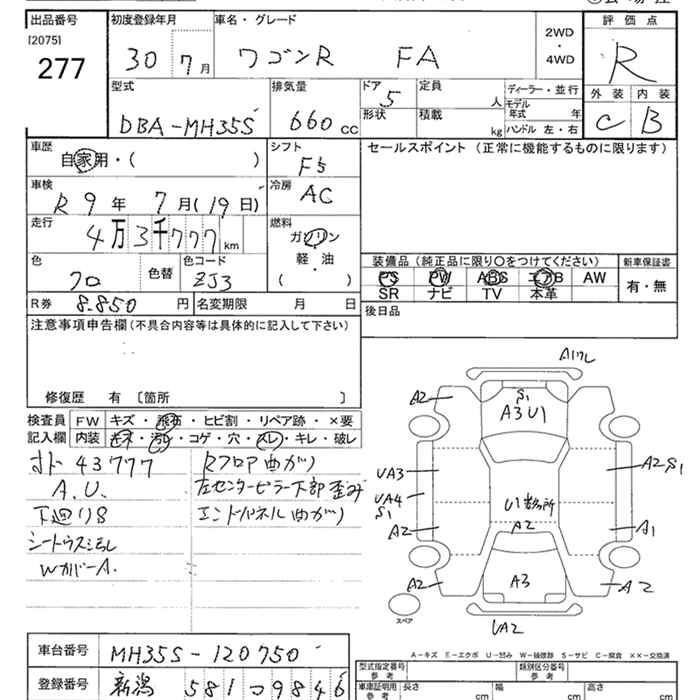 出品番号 初度登録年月 車名・グレード 2WD・4WD 評価点
[2075]
277 30 7月 ワゴンR FA R
型式 排気量 ドア形状 5 定員 人 積載 kg ディーラー・並行 モデル年式 年 ハンドル 左・右 外装 内装
DBA-MH35S 660cc C B
車歴 自家用・( ) シフト F5 セールスポイント (正常に機能するものに限ります)
車検 R9年7月(19日) 冷房 AC
走行 4万3千777km 燃料 ガソリン・軽油 ( )
色 フロ 色替 色コード ZJ3
装備品 (純正品に限り○をつけてください) 新車保証書
PS PW ABS エアB AW 有・無
SR ナビ TV 本革
R券 8.850円 名変期限 月 日 後日品
注意事項申告欄 (不具合内容等は具体的に記入して下さい)
修復歴 有 [箇所 ]
検査員記入欄 FW キズ・飛石・ヒビ割・リペア跡・×要
内装 キズ・汚れ・コゲ・穴・スレ・キレ・破レ
オド 43777 Rフロア曲がり
A.U. 左センターピラー下部歪み
下廻りS エンドパネル曲がり
シートウスミ汚れ
WカバーA.
Aワレ
A2 S1 A2
A3U1
UA3 A2S1
UA4 S1 U1多数所
A2 A2 A1
A2 A3 A2
スペア UA2
A-キズ E-エクボ U-凹み W-補修跡 S-サビ C-腐食 ××-交換済
車台番号 MH35S-120750 型式指定番号 参考 類別区分番号 参考
登録番号 新潟 581 つ 9846 車庫証明用 参考 長さ cm 幅 cm 高さ cm